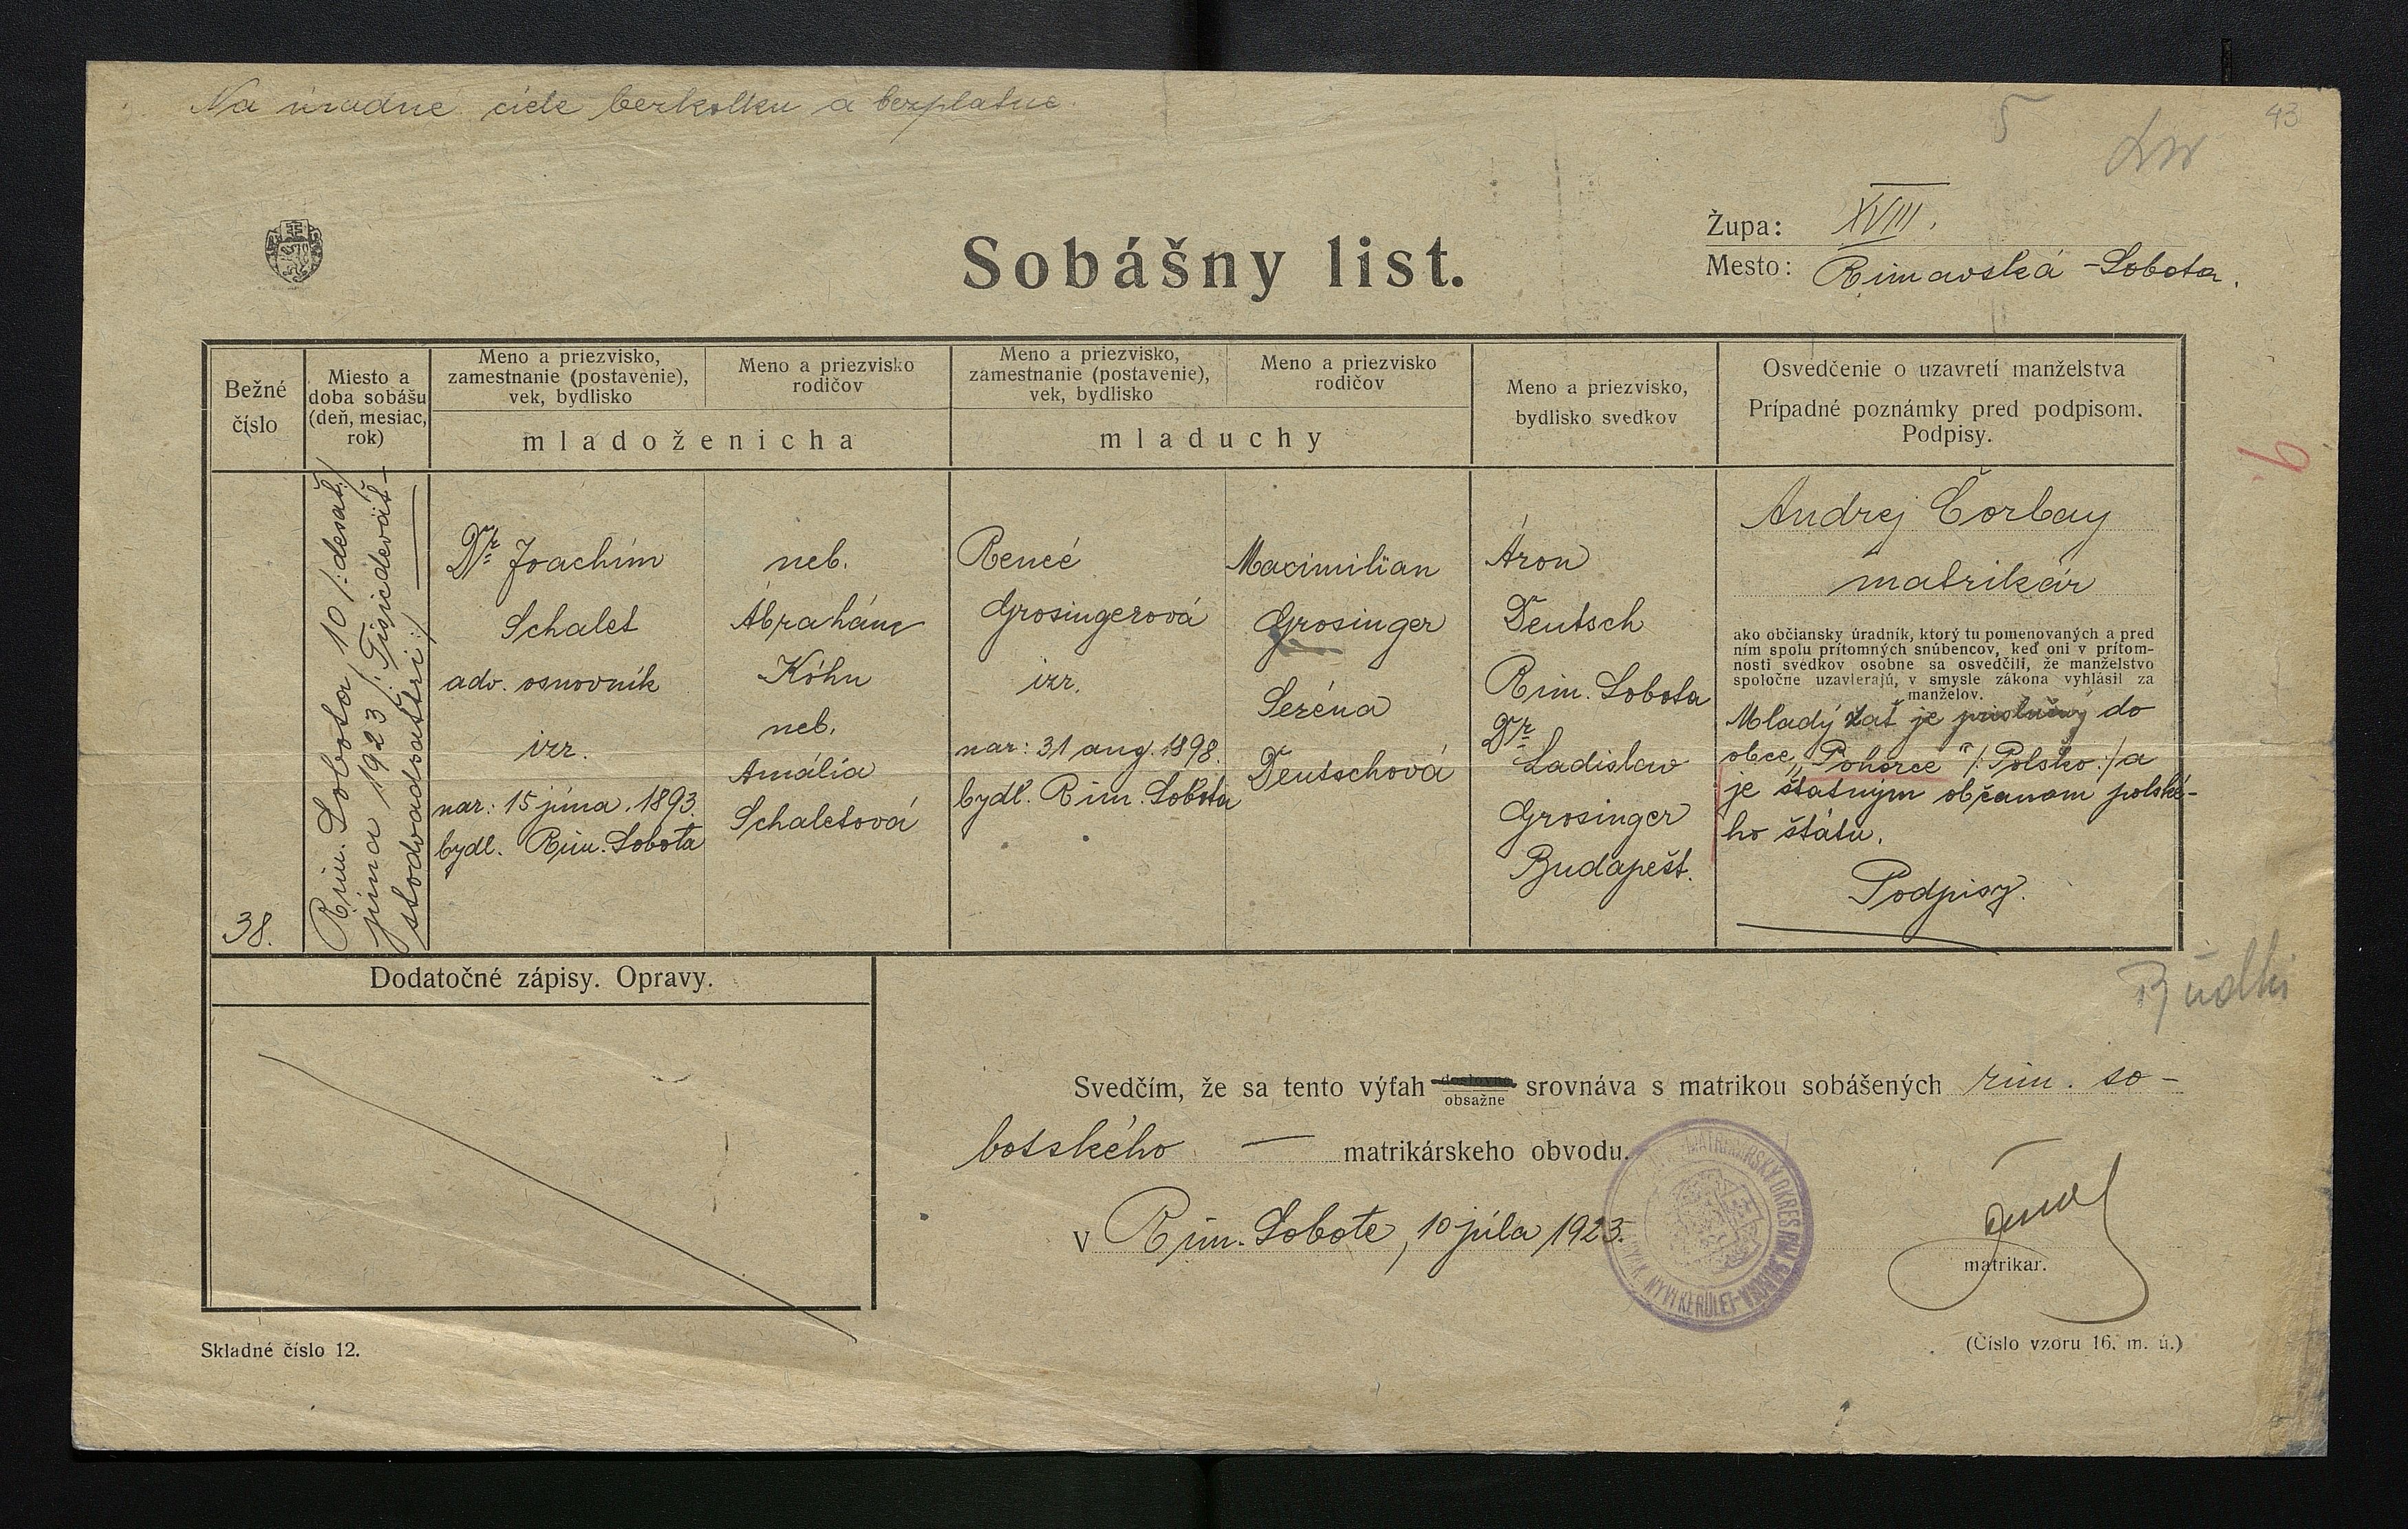 Na úradné ciele bezkolku a bezplatne.
5
43
Sobášny list.
Župa: XVIII.
Mesto: Rimavská-Sobota.
Bežné
číslo
Miesto a
doba sobášu
(deň, mesiac,
rok)
Meno a priezvisko,
zamestnanie (postavenie),
vek, bydlisko
Meno a priezvisko
rodičov
mladoženicha
Meno a priezvisko,
zamestnanie (postavenie),
vek, bydlisko
Meno a priezvisko
rodičov
mladuchy
Meno a priezvisko,
bydlisko svedkov
Osvedčenie o uzavretí manželstva
Prípadné poznámky pred podpisom.
Podpisy.
38.
Rim. Sobota, 10 /:desať:/
júna 1923 /:Tisícdeväť-
stodvadsaťtri:/
Dr. Joachim
Schalet
adv. osnovník
izr.
nar: 15 júna. 1893.
bydl. Rim. Sobota
neb.
Ábrahám
Kóhn
neb.
Amália
Schaletová
Reneé
Grosingerová
izr.
nar: 31 aug. 1898.
bydl. Rim. Sobota
Maximilian
Grosinger
Seréna
Deutschová
Áron
Deutsch
Rim. Sobota
Dr.
Ladislav
Grosinger
Budapešt.
Andrej Čorbay
matrikár
ako občiansky úradník, ktorý tu pomenovaných a pred
ním spolu prítomných snúbencov, keď oni v prítom-
nosti svedkov osobne sa osvedčili, že manželstvo
spoločne uzavierajú, v smysle zákona vyhlásil za
manželov.
Mladý zať je príslušný do
obce „Pohorce" /:Polsko:/ a
je štatným občanom polské-
ho štátu.
Podpisy.
6
Dodatočné zápisy. Opravy.
Svedčím, že sa tento výťah doslovne obsažne srovnáva s matrikou sobášených rim. so-
botského — matrikárskeho obvodu.
v Rim. Sobote, 10 júla 1923.
MATRIKÁRSKY OKRES RIM. SOBOTA
matrikár.
Skladné číslo 12.
(Číslo vzoru 16. m. ú.)